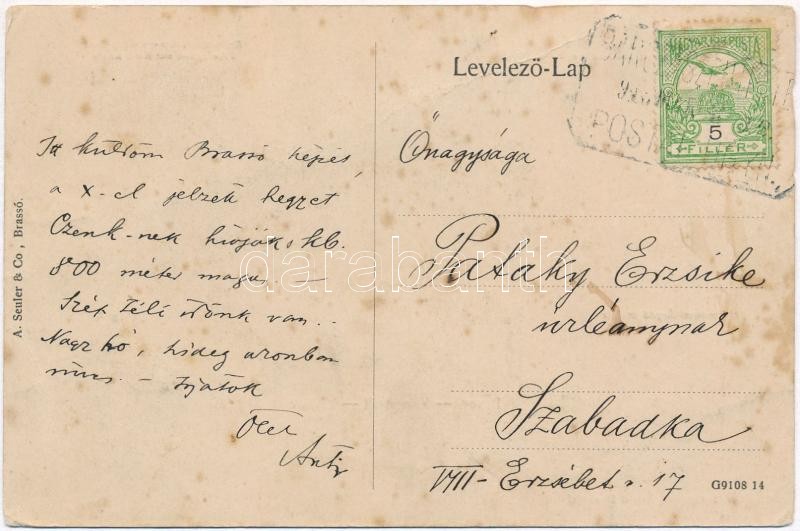 Levelező-Lap
MAGYAR KIR. POSTA
5
FILLÉR
POST
Itt küldöm Brassó képés,
a X-el jelzett hegyet
Czenk-nek hívják, kb.
800 méter magas. —
Szép téli időnk van. -
Nagy hó, hideg azonban
nincs. — Írjatok
Ölel
Antir
Önagysága
Pataky Erzsike
úrleánynak
Szabadka
VIII - Erzsébet u. 17
A. Seuler & Co, Brassó.
G9108 14
darabanth